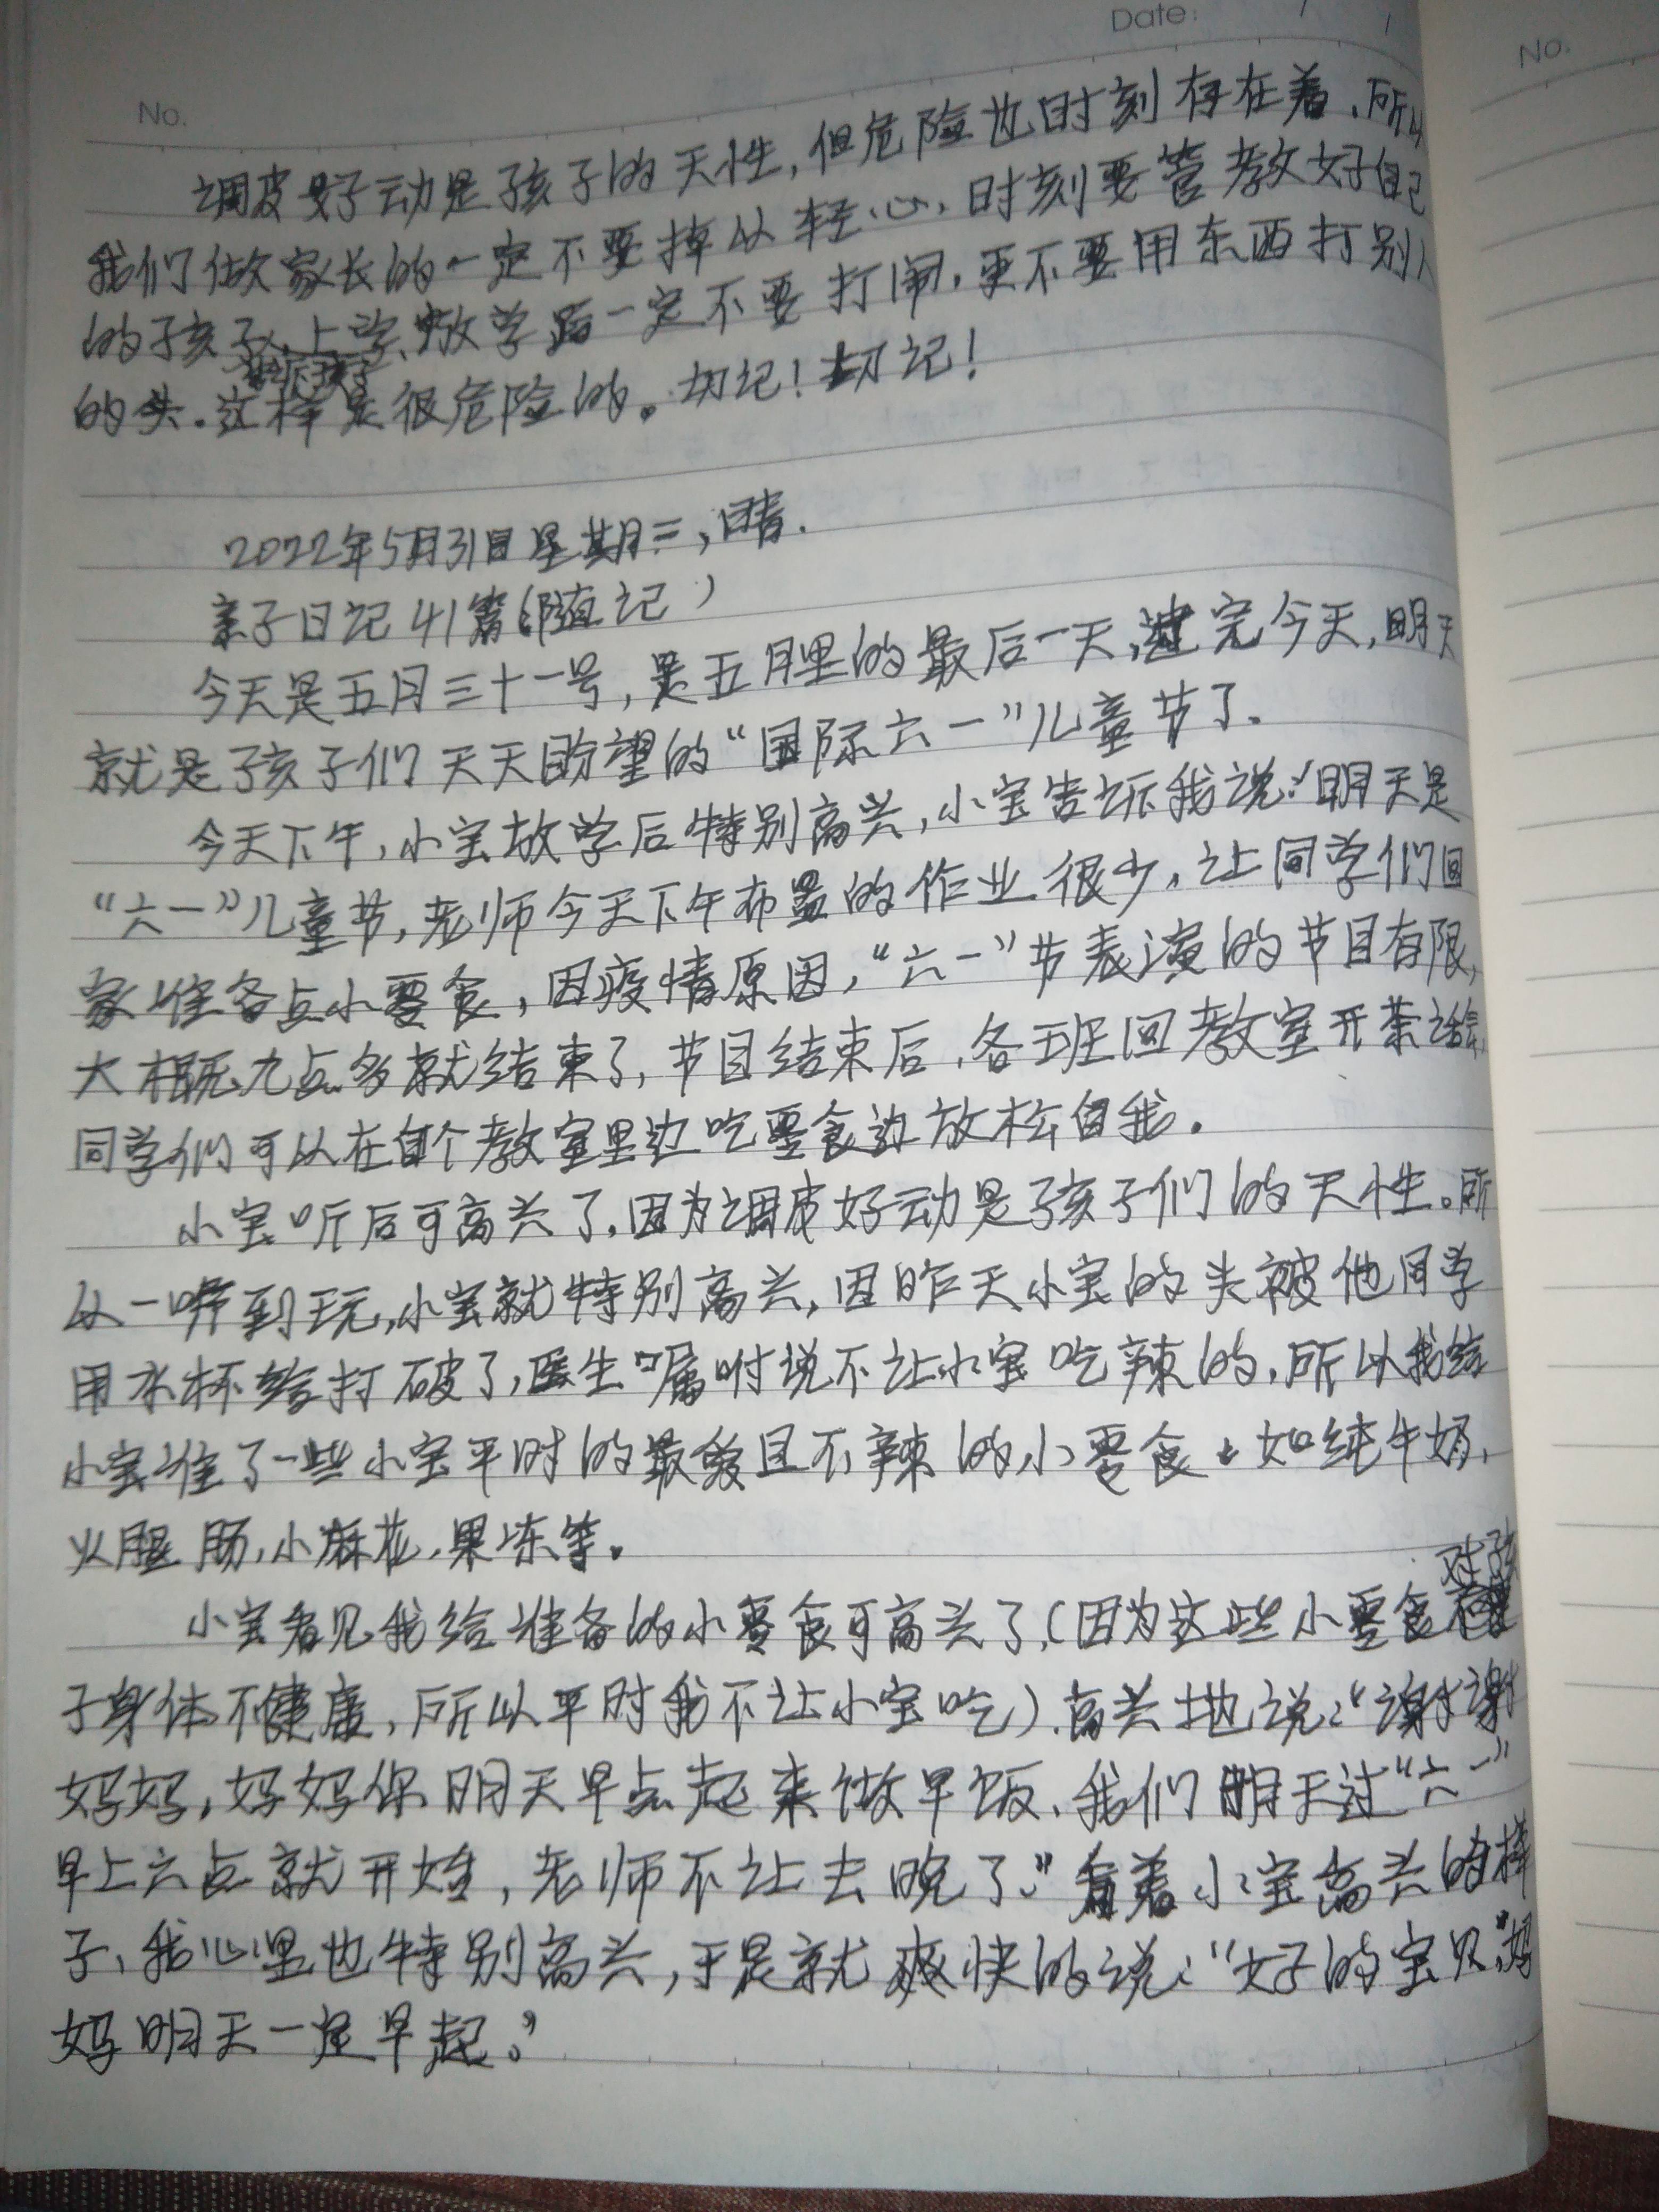 Date:
No.
No.
调皮好动是孩子的天性,但危险也时刻存在着,所以
我们做家长的一定不要掉以轻心,时刻要管教好自己
的孩子,上学、放学后一定不要打闹,更不要用东西打别人
的头.这样是很危险的。切记!切记!
2022年5月31日星期二,晴.
亲子日记41篇(随记)
今天是五月三十一号,是五月里的最后一天,过完今天,明天
就是孩子们天天盼望的“国际六一”儿童节了.
今天下午,小宝放学后特别高兴,小宝告诉我说:“明天是
“六一”儿童节,老师今天下午布置的作业很少,让同学们回
家准备点小零食,因疫情原因,“六一”节表演的节目有限,
大概九点多就结束了,节目结束后,各班回教室开茶话会,
同学们可以在自个教室里边吃零食边放松自我.
小宝听后可高兴了,因为调皮好动是孩子们的天性。所
以一听到玩,小宝就特别高兴,因昨天小宝的头被他同学
用水杯给打破了,医生嘱咐说不让小宝吃辣的,所以我给
小宝准了一些小宝平时的最爱且不辣的小零食。如纯牛奶,
火腿肠,小麻花,果冻等。
小宝看见我给准备的小零食可高兴了,(因为这些小零食对孩
子身体不健康,所以平时我不让小宝吃).高兴地说:“谢谢
妈妈,妈妈你明天早点起来做早饭,我们明天过“六一”
早上六点就开始,老师不让去晚了。”看着小宝高兴的样
子,我心里也特别高兴,于是就爽快的说:“好的宝贝,妈
妈明天一定早起。”